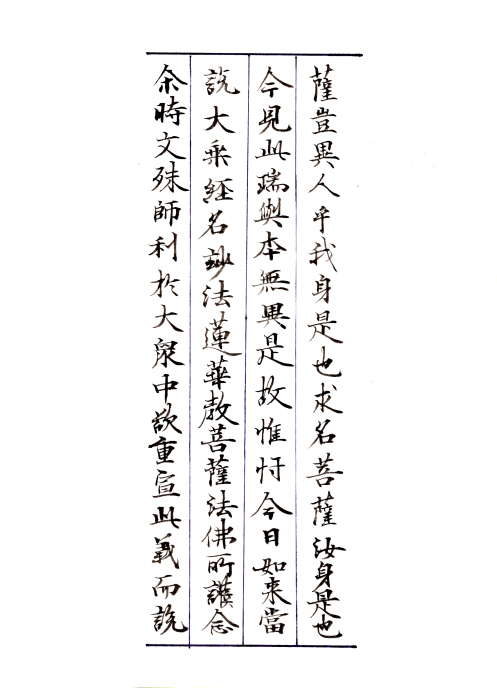 薩豈異人乎我身是也求名菩薩汝身是也
今見此瑞與本無異是故惟忖今日如来當
説大乗経名妙法蓮華教菩薩法佛所護念
尒時文殊師利於大衆中欲重宣此義而説